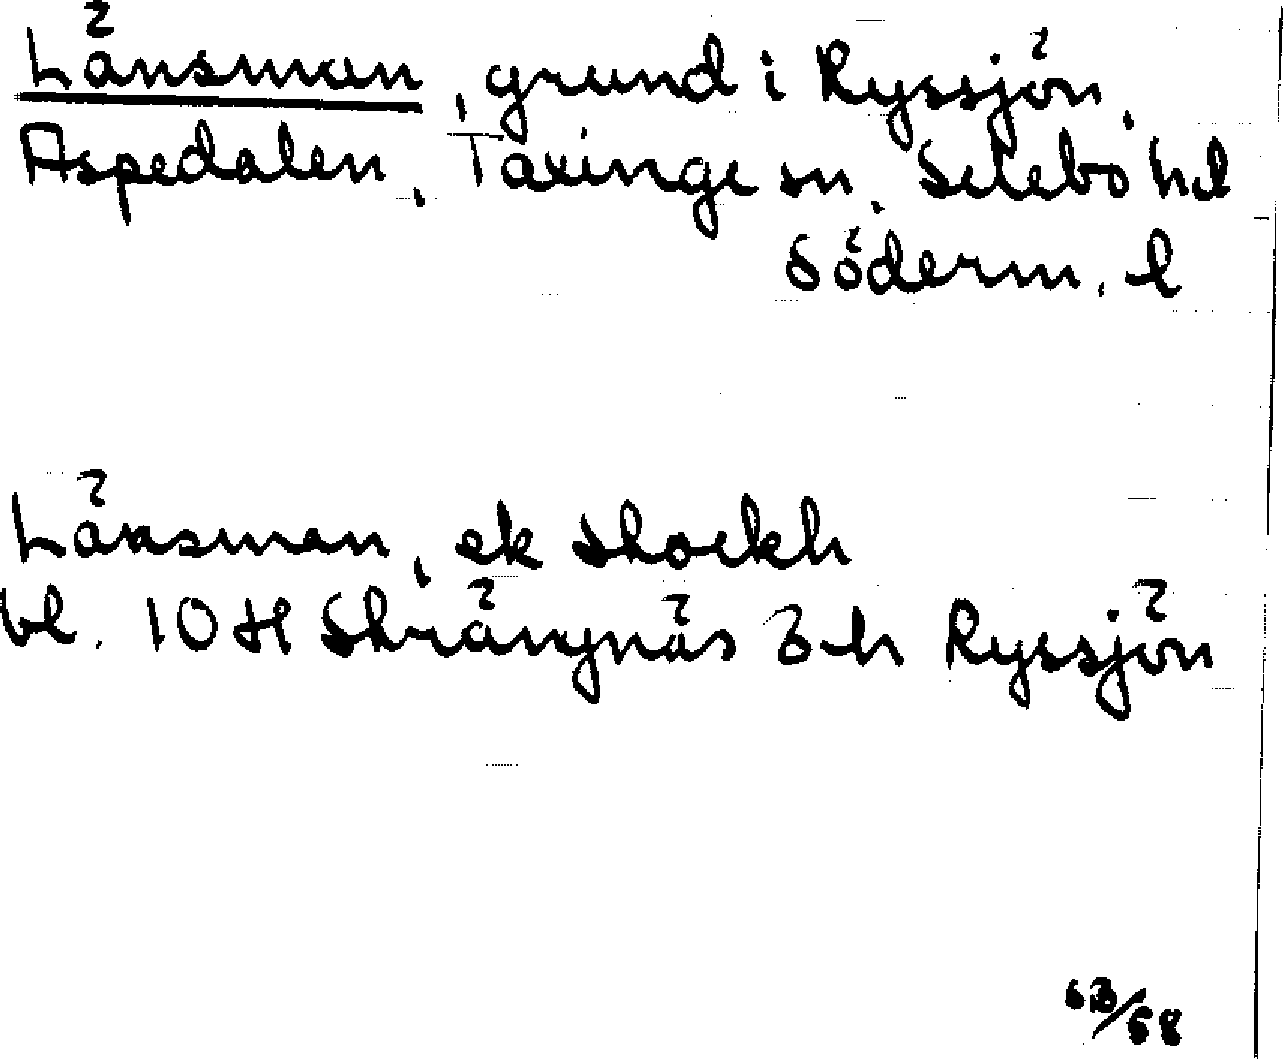 Länsman, grund i Ryssjön,
Aspedalen, Taxinge sn, Selebo hd
Söderm. l
Länsman, ek Stockh
bl. 10 H Strängnäs 3 h Ryssjön